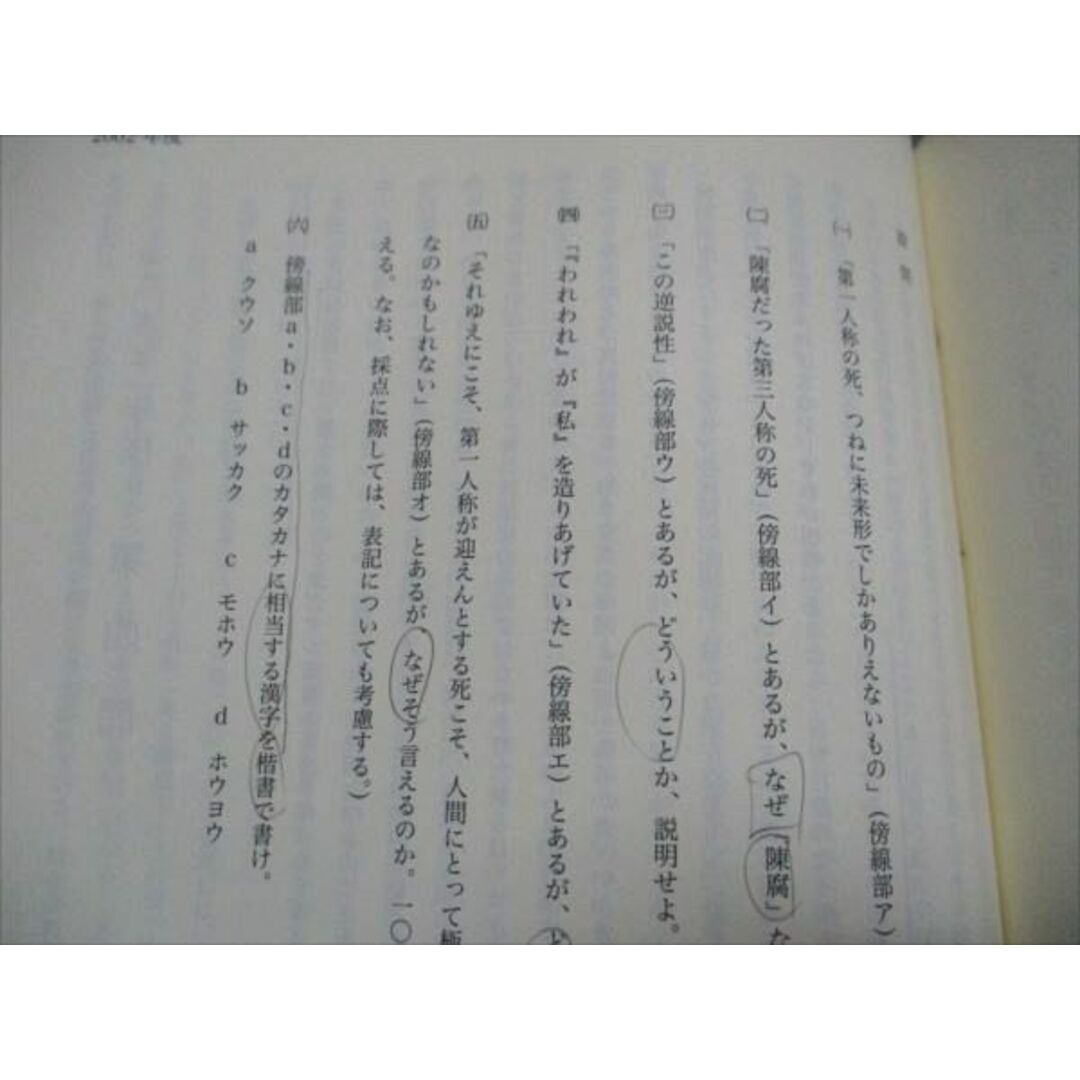 2002年度
設問
㈠ 「第一人称の死、つねに未来形でしかありえないもの」（傍線部ア）
㈡ 「陳腐だった第三人称の死」（傍線部イ）とあるが、なぜ「陳腐」な
㈢ 「この逆説性」（傍線部ウ）とあるが、どういうことか、説明せよ。
㈣ 「『われわれ』が『私』を造りあげていた」（傍線部エ）とあるが、ど
㈤ 「それゆえにこそ、第一人称が迎えんとする死こそ、人間にとって極
なのかもしれない」（傍線部オ）とあるが、なぜそう言えるのか。一〇
える。なお、採点に際しては、表記についても考慮する。）
㈥ 傍線部a・b・c・dのカタカナに相当する漢字を楷書で書け。
a クウソ b サッカク c モホウ d ホウヨウ